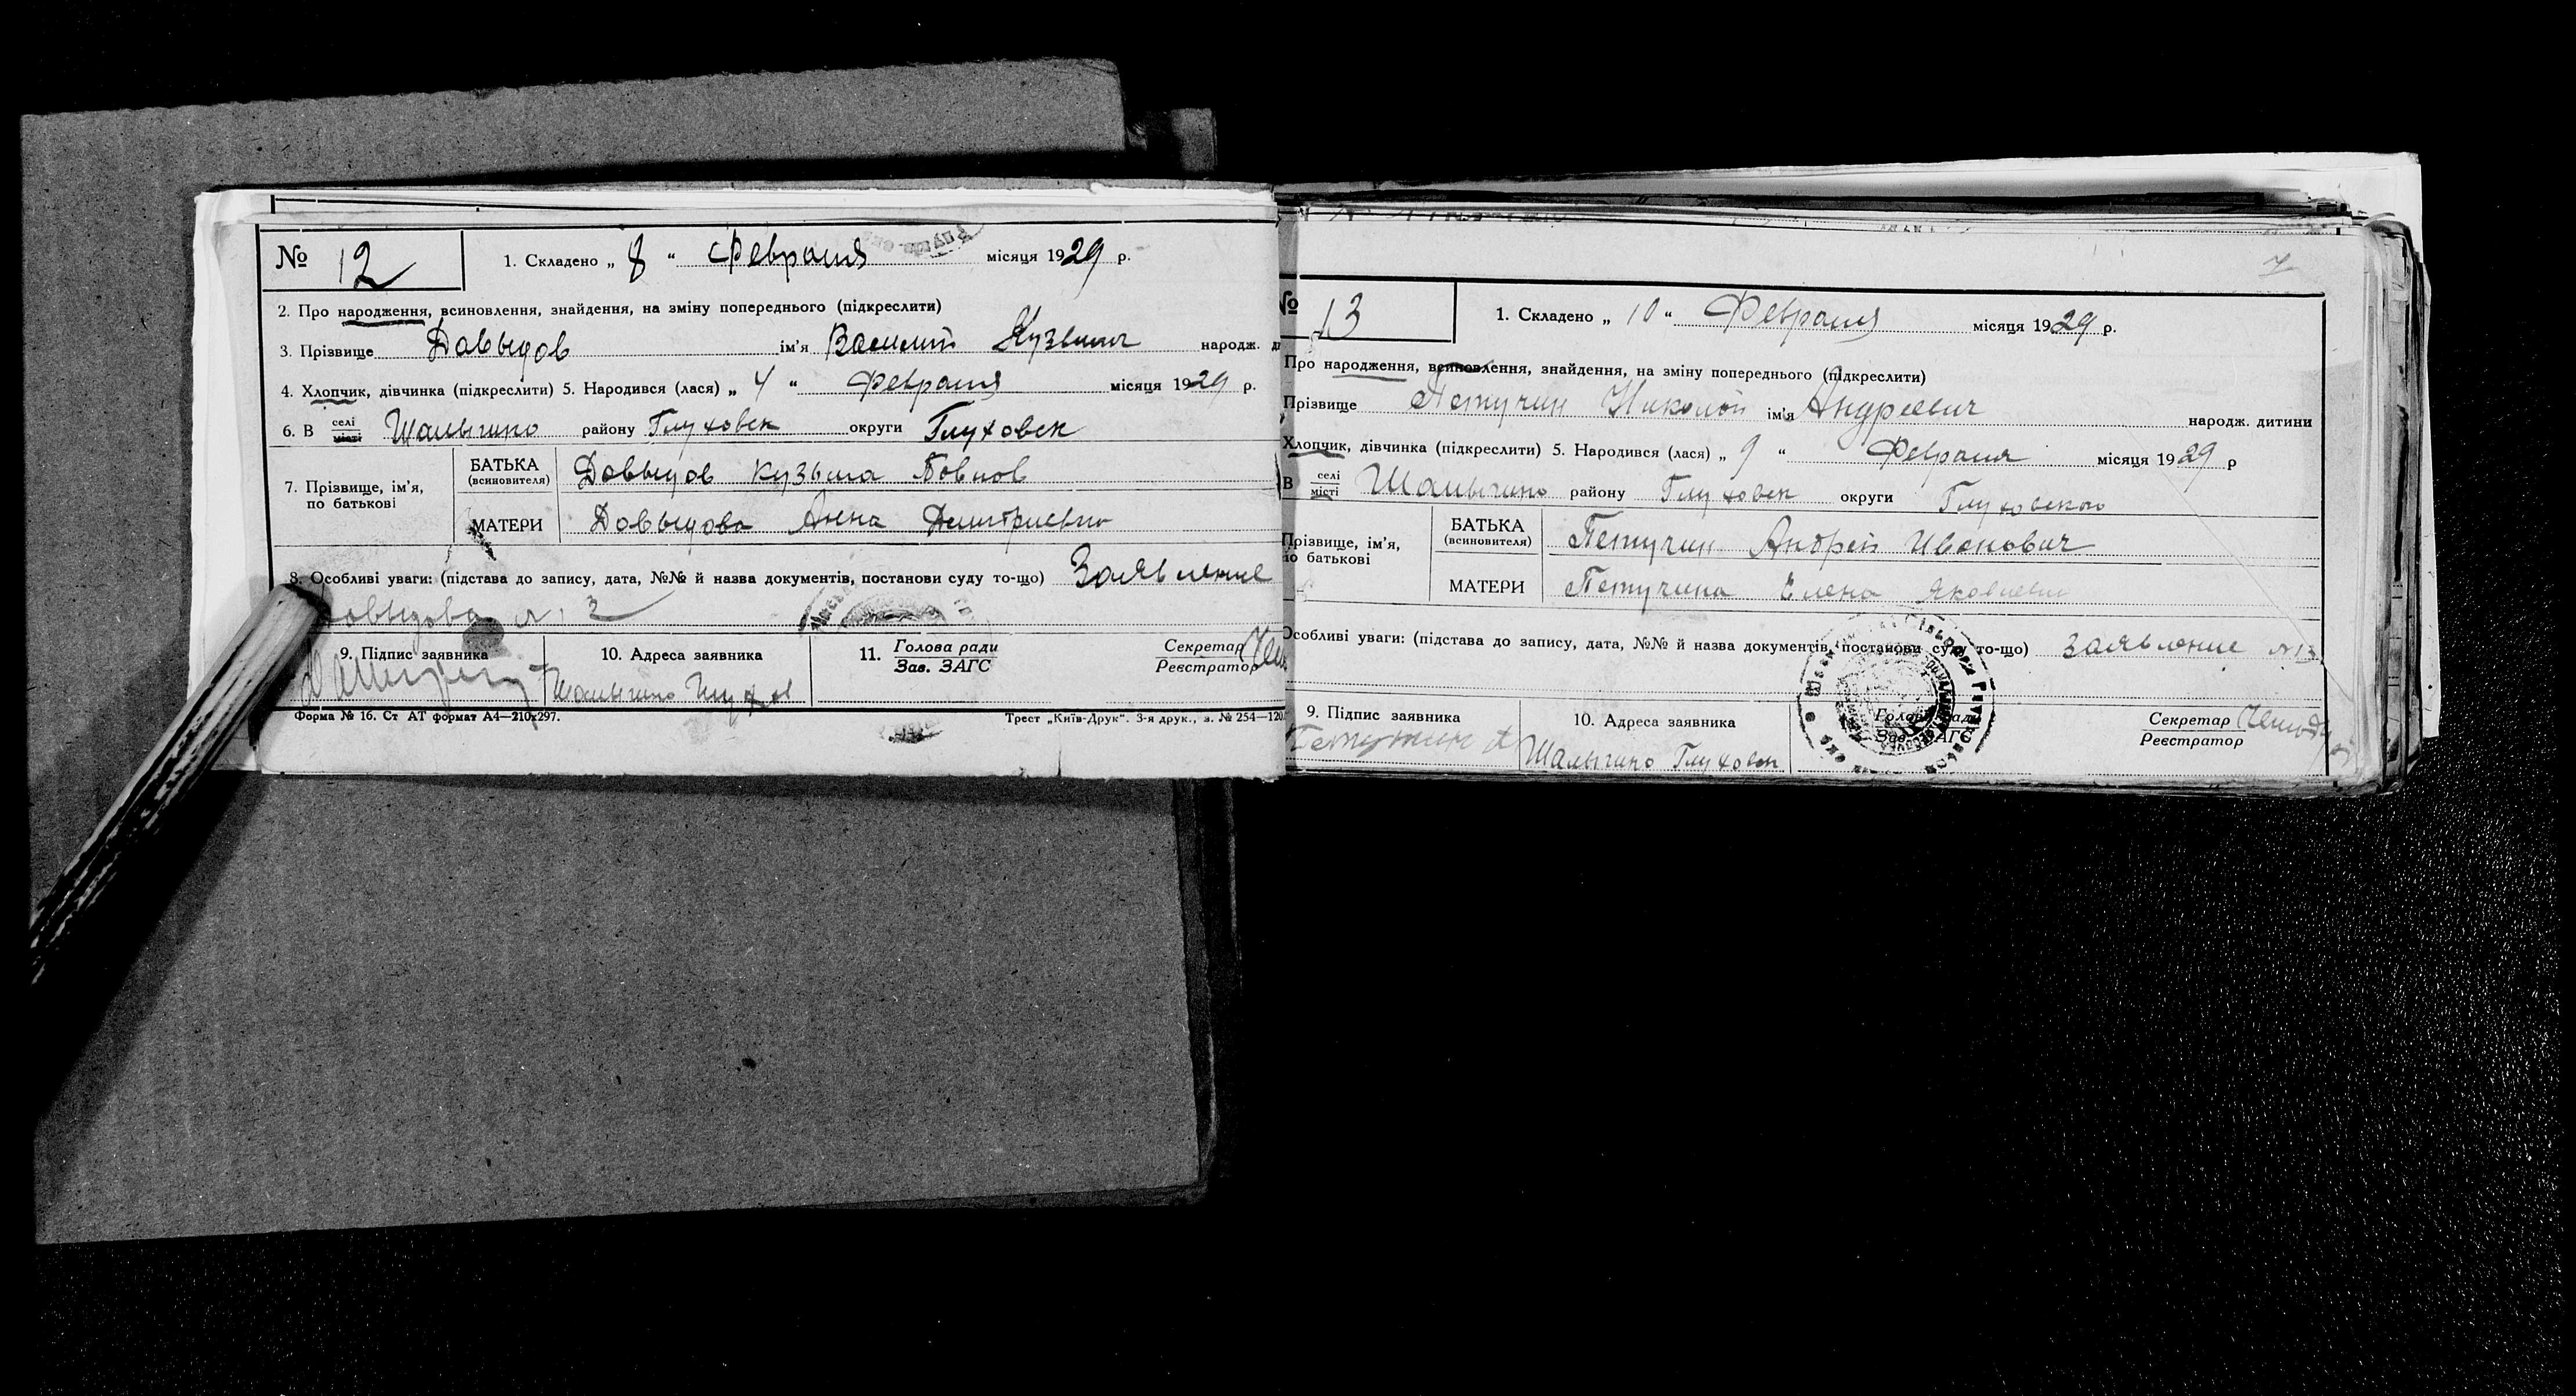 № 12
1. Складено „ 8 “ Февраля місяця 1929 р.
2. Про народження, всиновлення, знайдення, на зміну попереднього (підкреслити)
3. Прізвище Давыдов ім'я Василий Кузьмич народж.
4. Хлопчик, дівчинка (підкреслити) 5. Народився (лася) „ 4 “ Февраля місяця 1929 р.
6. В селі місті Шалыгино району Глуховск округи Глуховск
7. Прізвище, ім'я, по батькові
БАТЬКА (всиновителя) Давыдов Кузьма Павлов
МАТЕРИ Давыдова Анна Дмитриевна
8. Особливі уваги: (підстава до запису, дата, №№ й назва документів, постанови суду то-що) Заявление
Давыдова
9. Підпис заявника
10. Адреса заявника
11. Голова ради Зав. ЗАГС
Секретар Реєстратор
Шалыгино Глухов
Форма № 16. Ст АТ формат А4—210х297.
Трест „Київ-Друк“. 3-я друк., з. № 254—120
№ 13
1. Складено „ 10 “ Февраля місяця 1929 р.
Про народження, всиновлення, знайдення, на зміну попереднього (підкреслити)
Прізвище Петухин Николай ім'я Андреевич народж. дитини
Хлопчик, дівчинка (підкреслити) 5. Народився (лася) „ 9 “ Февраля місяця 1929 р
В селі місті Шалыгино району Глуховск округи Глуховского
Прізвище, ім'я, по батькові
БАТЬКА (всиновителя) Петухин Андрей Иванович
МАТЕРИ Петухина Елена Яковлевна
Особливі уваги: (підстава до запису, дата, №№ й назва документів, постанови суду то-що) Заявление №13
9. Підпис заявника
10. Адреса заявника
Голова ради Зав. ЗАГС
Секретар Реєстратор
Петухин А
Шалыгино Глуховск